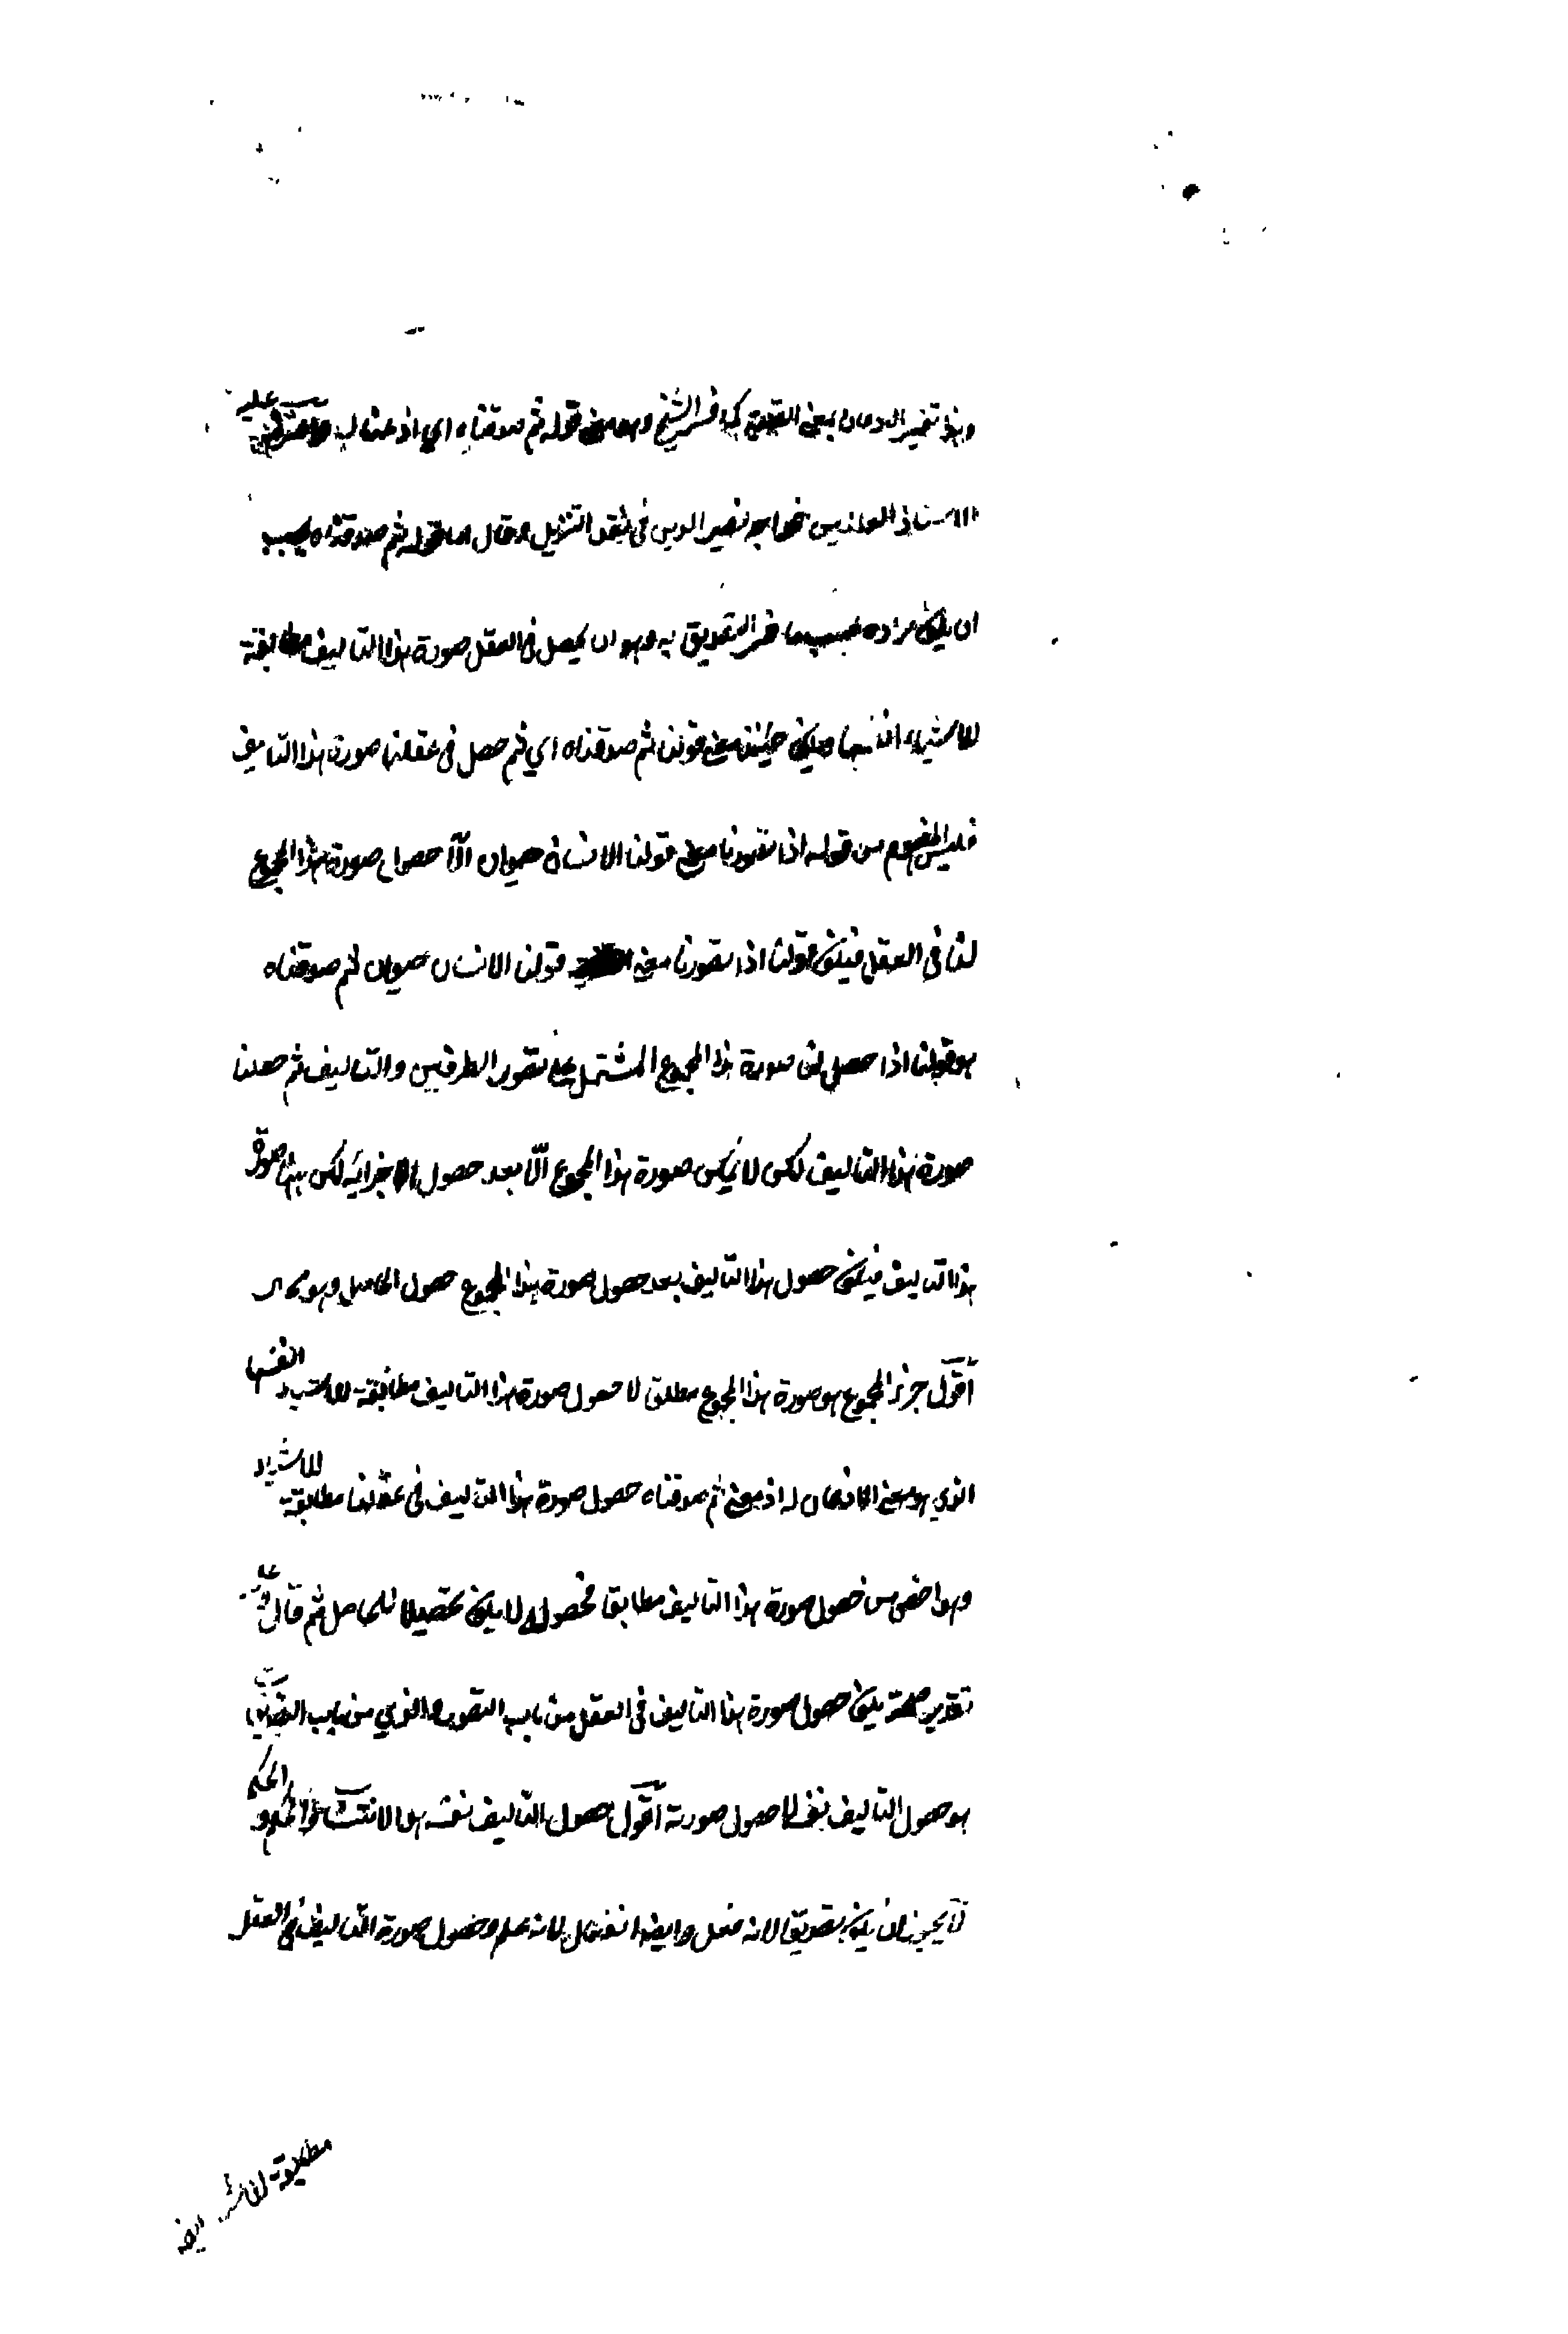 وهذا تفسير الاذعان بعينه كما فسر الشيخ وهو معنى قوله ثم صدقناه اي اذعنا له واعترض عليه
الاستاذ خواجه نصير الدين في نقد التنزيل وقال اما قوله ثم صدقناه يجب
ان يكون مراده بحسب ما فسر التصديق به وهو ان يحصل في العقل صورة هذا التاليف مطابقة
للاشياء انفسها ويكون حينئذ معنى قولنا ثم صدقناه اي ثم حصل في عقلنا صورة هذا التاليف
فليس المفهوم من قوله اذا تصورنا معنى قولنا الانسان حيوان الّا حصول صورة هذا المجموع
لنا في العقل فيكون قولنا اذا تصورنا معنى قولنا الانسان حيوان ثم صدقناه
هو قولنا اذا حصل لنا صورة هذا المجموع المشتمل على تصور الطرفين والتاليف ثم حصلنا
صورة هذا التاليف لكن لا يمكن صورة هذا المجموع الّا بعد حصول اجزائه لكن بينها صورة
هذا التاليف فيكون حصول هذا التاليف بعد حصول صورة هذا المجموع حصول الحاصل وهو محال
أقول جزء المجموع هو صورة هذا المجموع مطلق لا حصول صورة هذا التاليف مطابقة للاشياء انفسها
الذي هو معنى الاذعان له اذ معنى ثم صدقناه حصول صورة هذا التاليف في عقلنا مطابقة للاشياء
وهو اخص من حصول صورة هذا التاليف مطابقا فحصوله لا يكون تحصيلا للحاصل ثم قال وعلى
تقدير صحته يكون حصول صورة هذا التاليف في العقل من باب التصور والذي من باب التصديق
هو حصول التاليف نفسه لا حصول صورته أقول حصول التاليف نفسه هو الانتساب والحكم و
لا يجوز ان يكون تصديقا لانه فعل وايضا انفعال لانه علم وحصول صورة التاليف في العقل
مطابقة